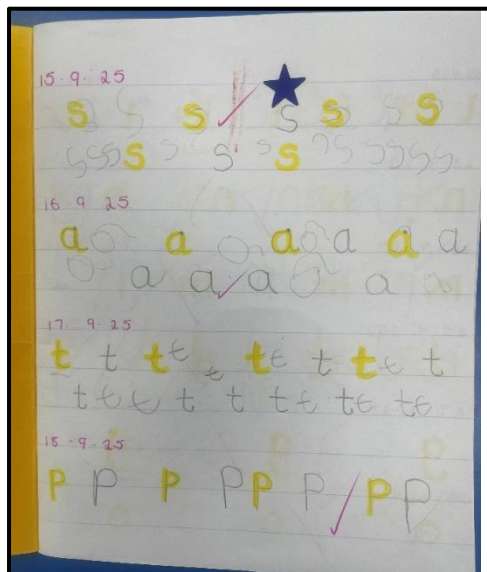 15.9.25
s s s s s s s
s s s s s s s s s s s s s
16 9 25
a a a a a a a
a a a a a
17 9.25
t t t t t t t t t t t
t t t t t t t t t t t
18-9-25
p p p p p p p p